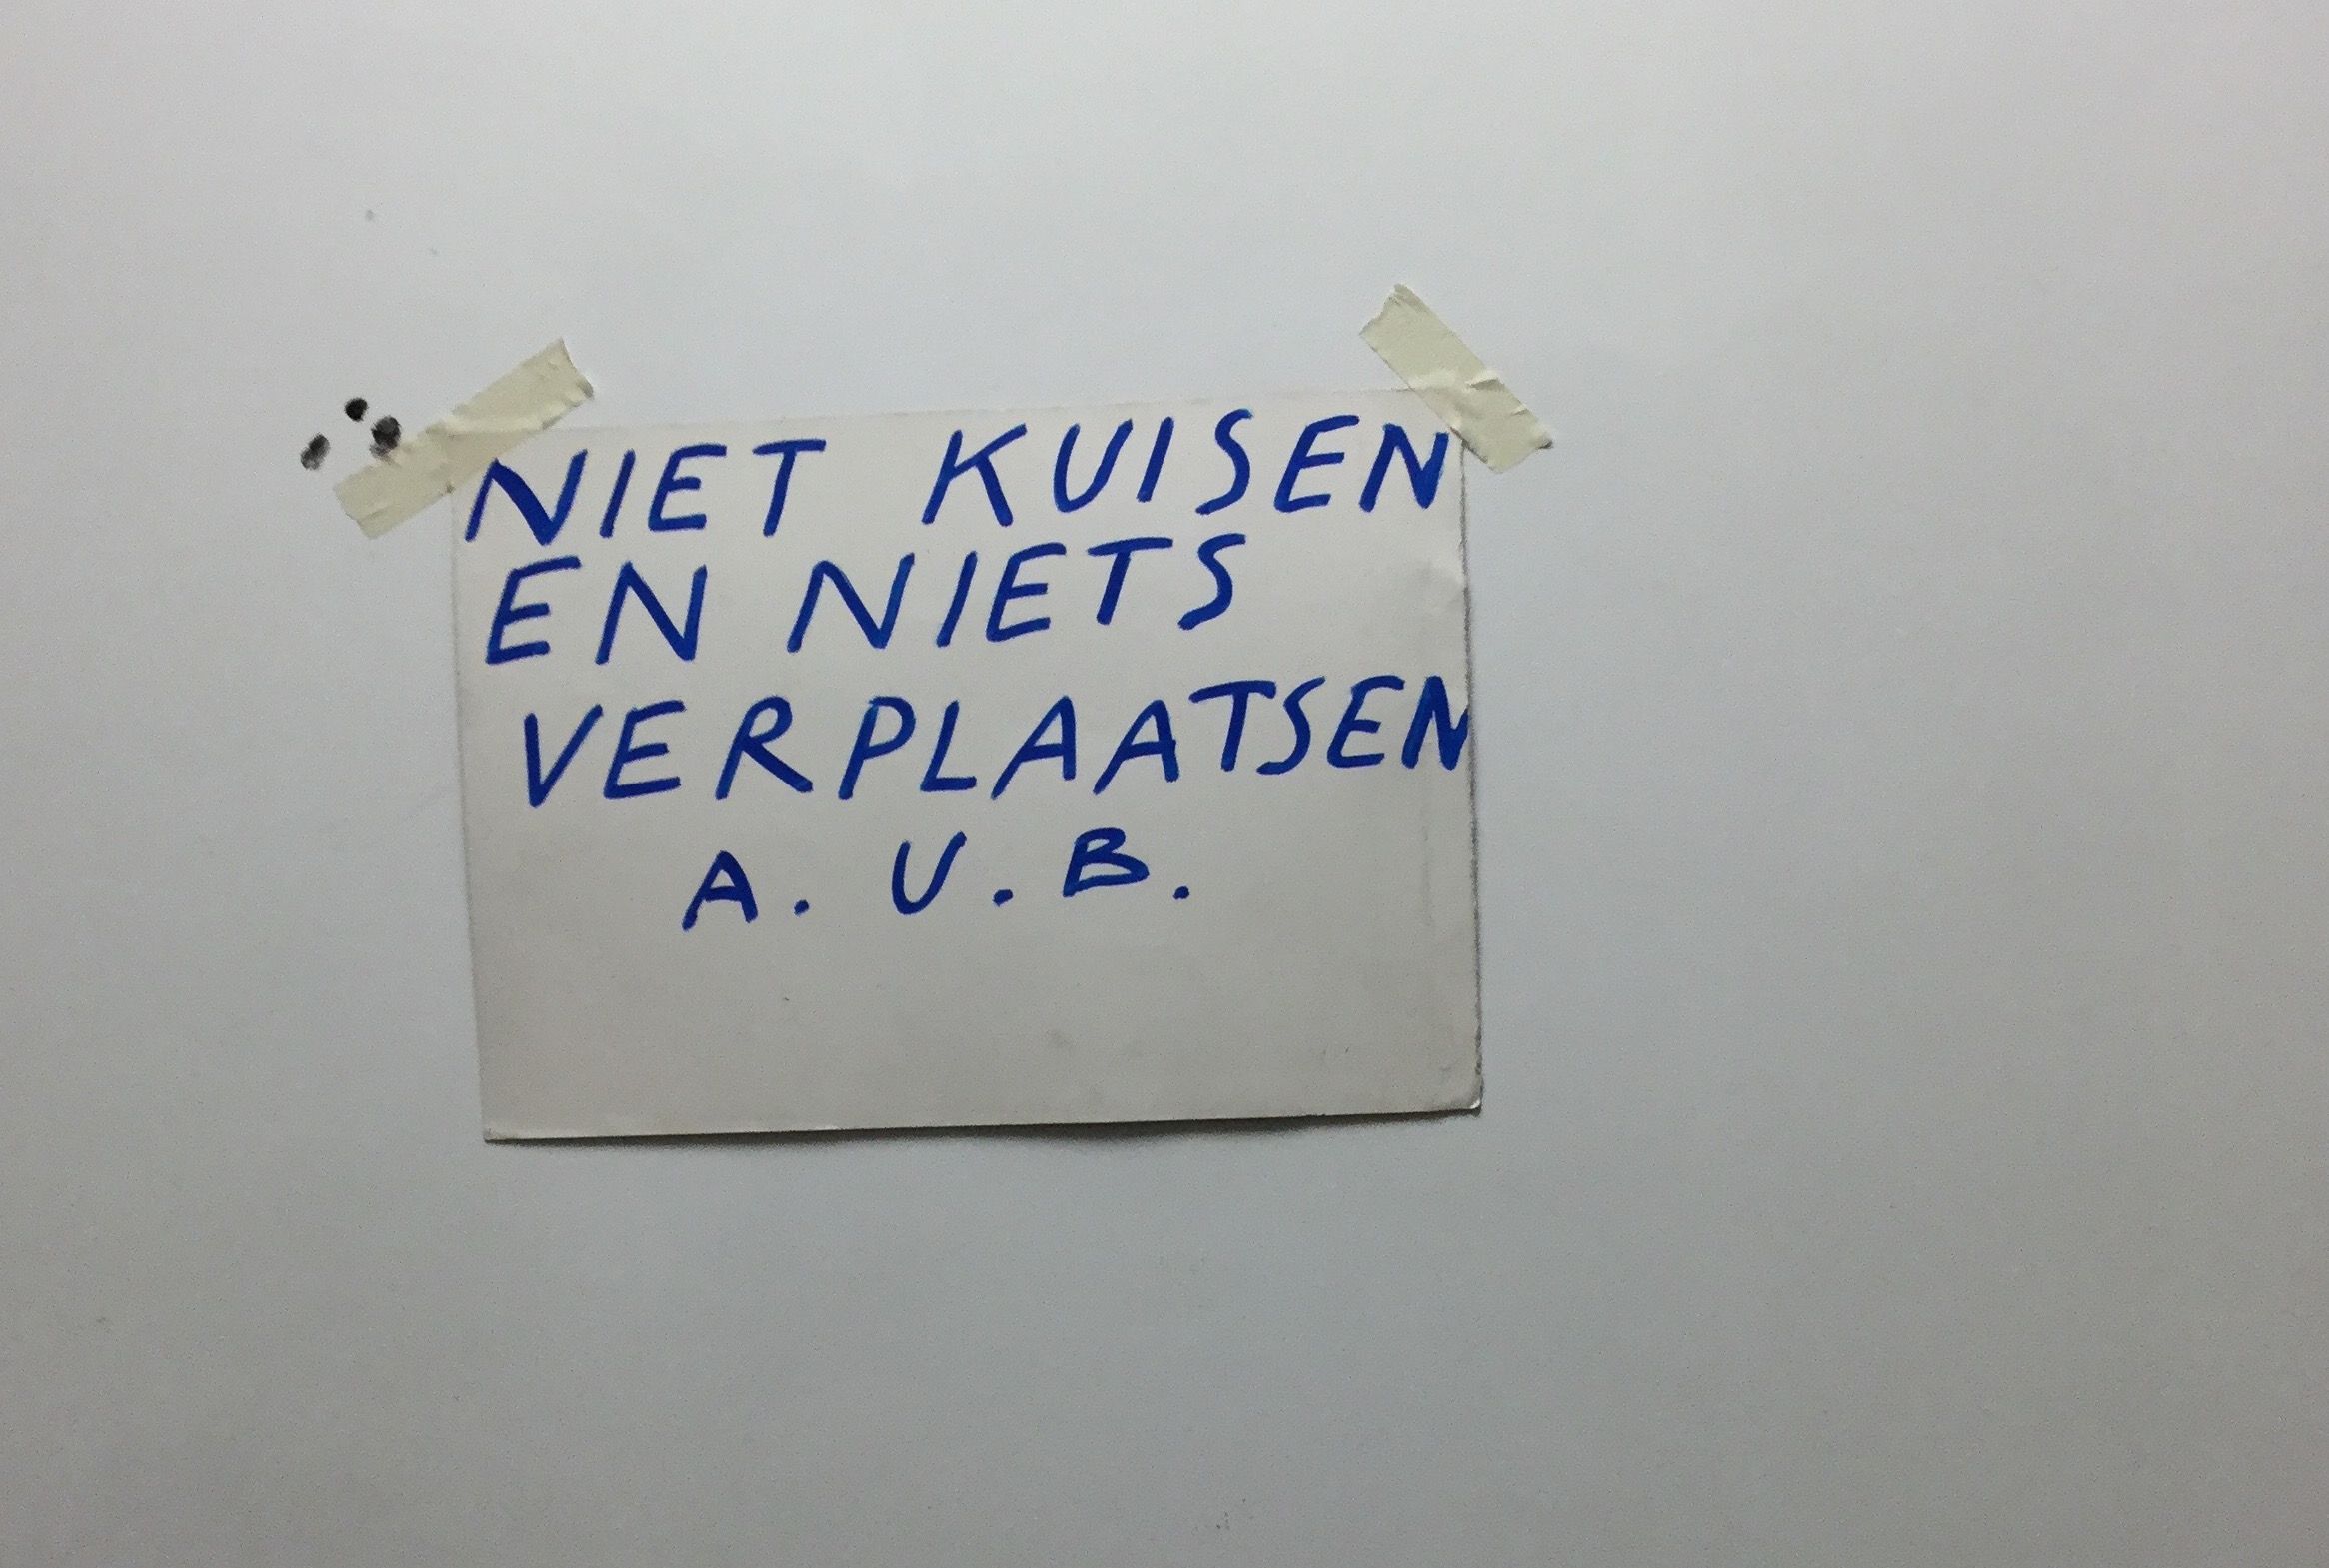 NIET KUISEN
EN NIETS
VERPLAATSEN
A. U. B.